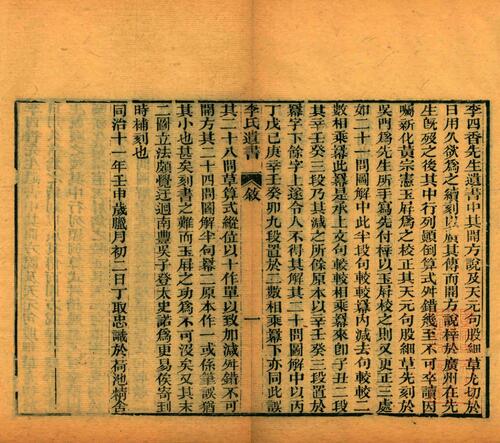 李四香先生遺書中其開方說及天元句股細草尤切於
日用久欲為之續刻以廣其傳而開方說梓於廣州在先
生旣歿之後其中行列顚倒算式舛錯幾至不可卒讀因
囑新化黃宗憲玉屛為之校正其天元句股細草先刻於
吳門為先生所手寫為先付梓以玉屛校之則又更正三處
如二十一問圖解中此半段句較較相乘冪內減去句較較二
數相乘冪此冪是承上文句較較相乘冪來卽子丑二段
其辛壬癸三段乃其減之所餘原本以辛壬癸三段置於二
冪字下餘字上遂令人不得其解其二十問圖解中以丙
丁戊己庚辛壬癸卯九段置於二數相乘冪下亦同此誤
李氏遺書
敘
一
其二十八問草算式縱位以十作單以致加減舛錯不可
開方其二十四問圖解半句冪二原本作一或係筆誤猶
其小也甚矣刻書之難而玉屛之功為不可沒矣又其末
二圖立法頗覺迂迴南豐吳子登太史諾為更易俟寄到
時補刻也
同治十一年壬申歲臘月初二日丁取忠識於荷池精舍